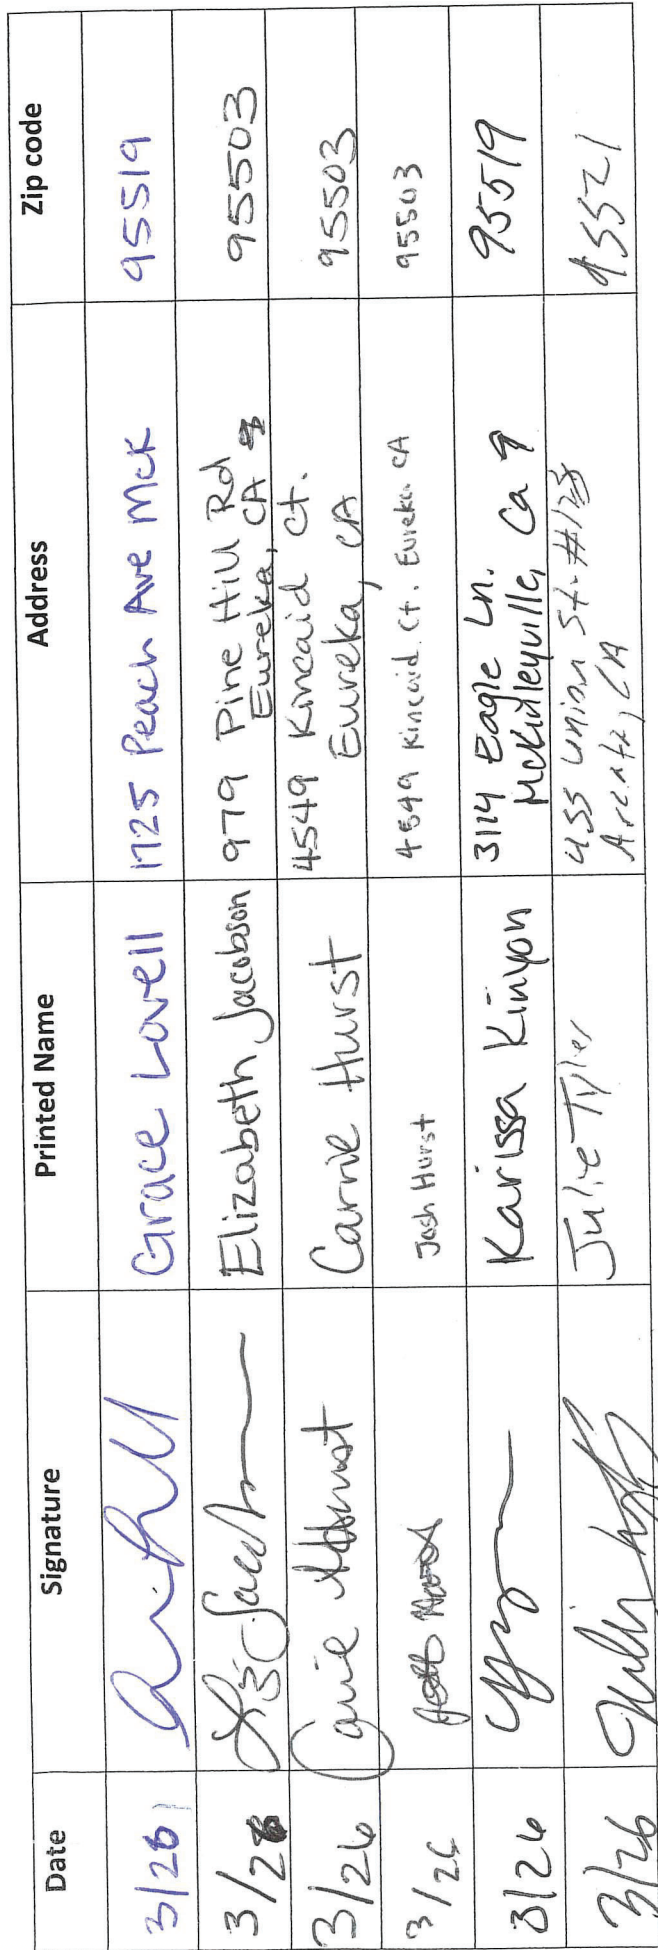 Date Signature Printed Name Address Zip code
3/26 Grace Lovell 1725 Peach Ave McK 95519
3/26 Elizabeth Jacobson 979 Pine Hill Rd 95503
Eureka, CA
3/26 Carrie Hurst Carrie Hurst 4549 Kincaid Ct. 95503
Eureka, CA
3/26 Josh Hurst 4549 Kincaid Ct. Eureka CA 95503
3/26 Karissa Kinyon 3114 Eagle Ln. 95519
McKinleyville, Ca 9
3/26 Julie Tyler 455 Union St. #128 95521
Arcata, CA